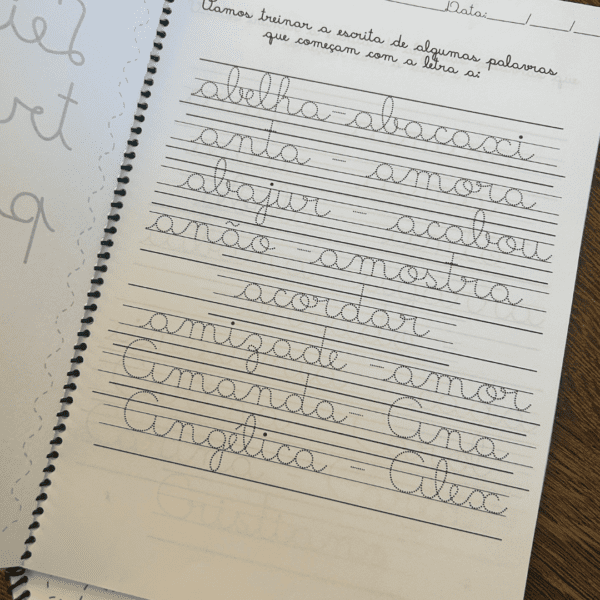 Data:____/____/____
Vamos treinar a escrita de algumas palavras
que começam com a letra a:
abelha-abacaxi
anta - amora
abajur - acabou
anão -amostra
acordar
amizade -amor
Amanda- Ana
Angélica - Alex